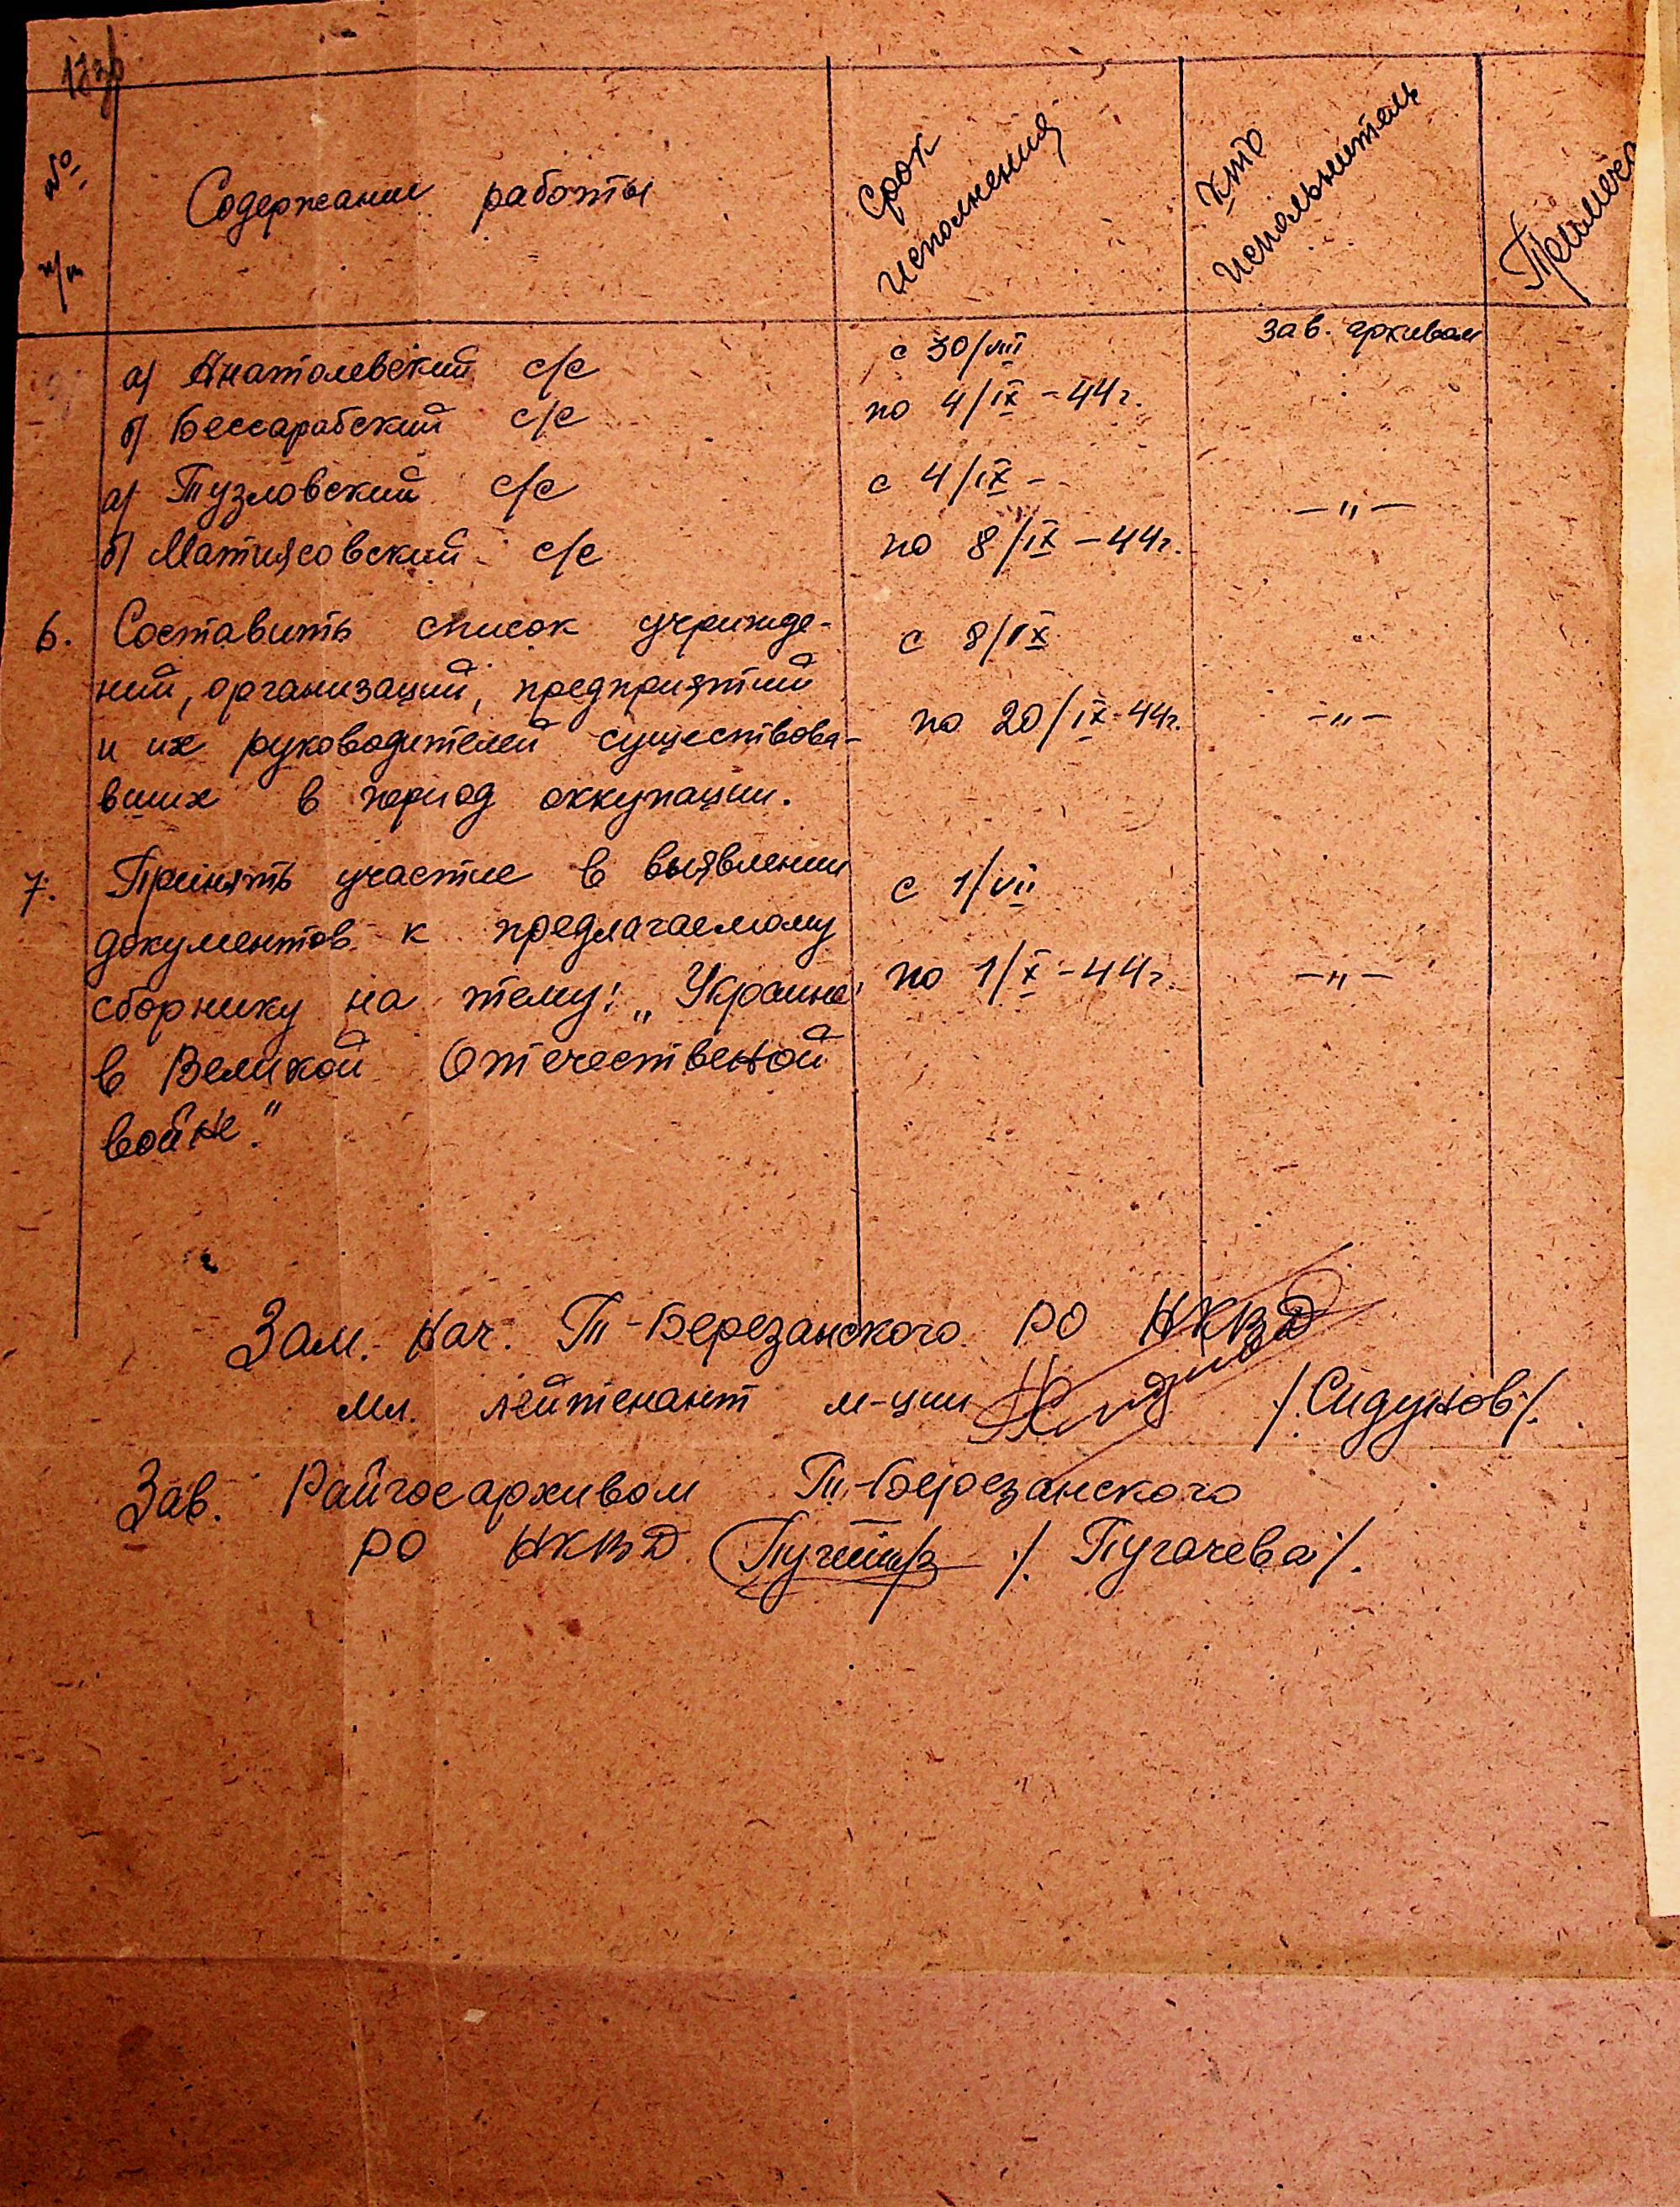 №
п/п
Содержание работы
Срок
исполнения
Кто
исполнитель
а) Анатолевский с/с
б) Бессарабский с/с
с 30/VIII
по 4/IX - 44г.
зав. архивом
а) Тузловский с/с
б) Матиясовский с/с
с 4/IX -
по 8/IX - 44г.
— " —
6. Составить список учрижде-
ний, организаций, предприятий
и их руководителей существова-
вших в период оккупации.
с 8/IX
по 20/IX - 44г.
— " —
7. Принять участие в выявлении
документов к предлагаемому
сборнику на тему: „Украина
в Великой Отечественой
войне."
с 1/VII
по 1/X - 44г.
— " —
Зам. Нач. Т-Березанского РО НКВД
Мл. лейтенант м-ции /.Сидунов/.
Зав. Райгосархивом Т-Березанского
РО НКВД /. Пугачева/.